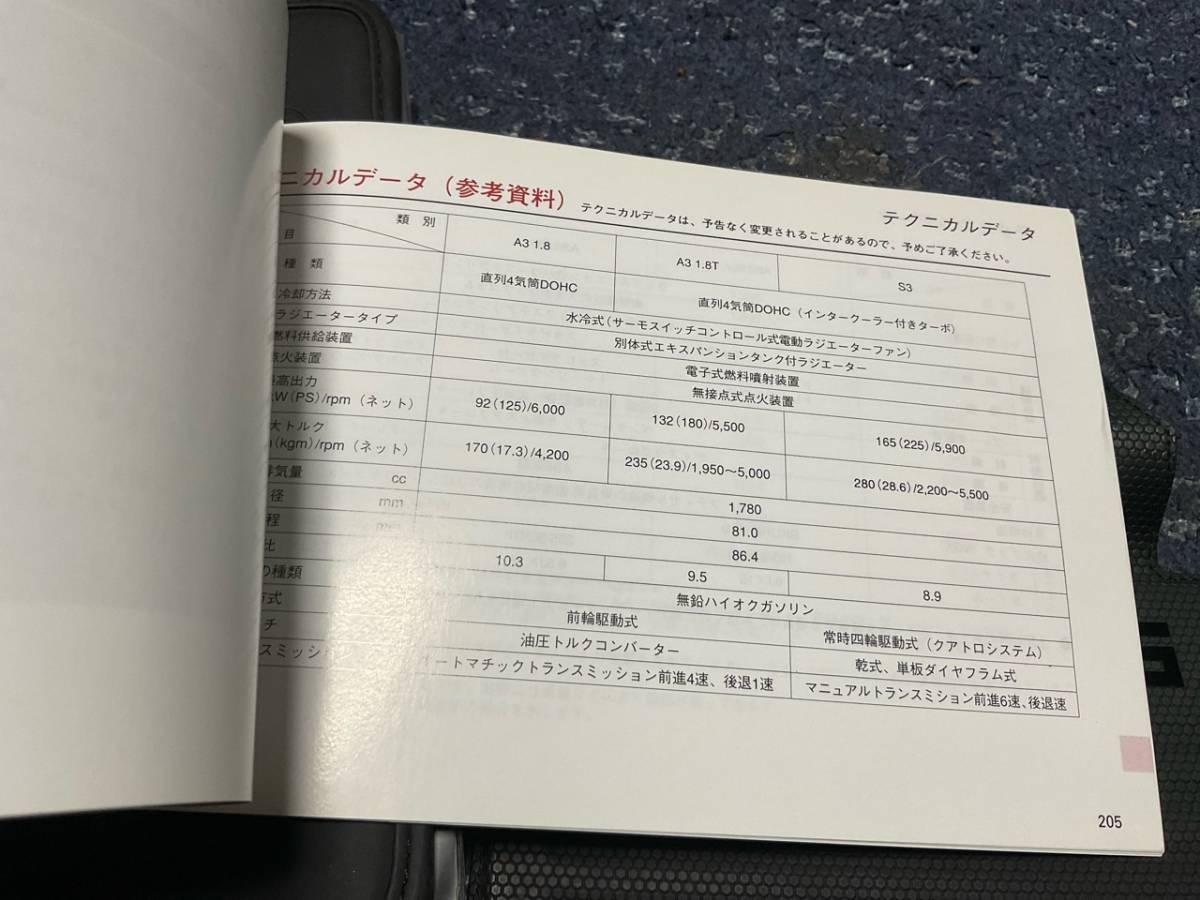 テクニカルデータ
ニカルデータ（参考資料）
テクニカルデータは、予告なく変更されることがあるので、予めご了承ください。
類 別
目
A3 1.8
A3 1.8T
S3
種 類
直列4気筒DOHC
直列4気筒DOHC（インタークーラー付きターボ）
冷却方法
水冷式（サーモスイッチコントロール式電動ラジエーターファン）
ラジエータータイプ
別体式エキスパンションタンク付ラジエーター
燃料供給装置
電子式燃料噴射装置
点火装置
無接点式点火装置
高出力
kW（PS）/rpm（ネット）
92（125）/6,000
132（180）/5,500
165（225）/5,900
大トルク
（kgm）/rpm（ネット）
170（17.3）/4,200
235（23.9）/1,950〜5,000
280（28.6）/2,200〜5,500
排気量 cc
1,780
径 mm
81.0
程 mm
86.4
比
10.3
9.5
8.9
の種類
無鉛ハイオクガソリン
方式
前輪駆動式
常時四輪駆動式（クアトロシステム）
チ
油圧トルクコンバーター
乾式、単板ダイヤフラム式
スミッシ
ートマチックトランスミッション前進4速、後退1速
マニュアルトランスミション前進6速、後退速
205